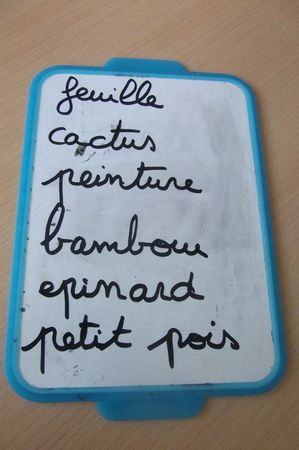 feuille
cactus
peinture
bambou
epinard
petit pois